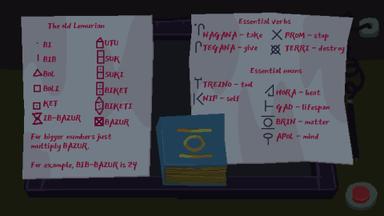 The old Lemurian
BI
BIB
BOL
BOLI
KET
ZIB-BAZUR
UTU
SUK
SUKI
BIKET
BIKETI
BAZUR
For bigger numbers just
multiply BAZUR.
For example, BIB-BAZUR is 24
Essential verbs
NAGANA - take
TEGANA - give
PROM - stop
TERRI - destroy
Essential nouns
TREINO - tool
KNIP - self
HORA - heat
GAD - lifespan
BRIN - matter
APOL - mind